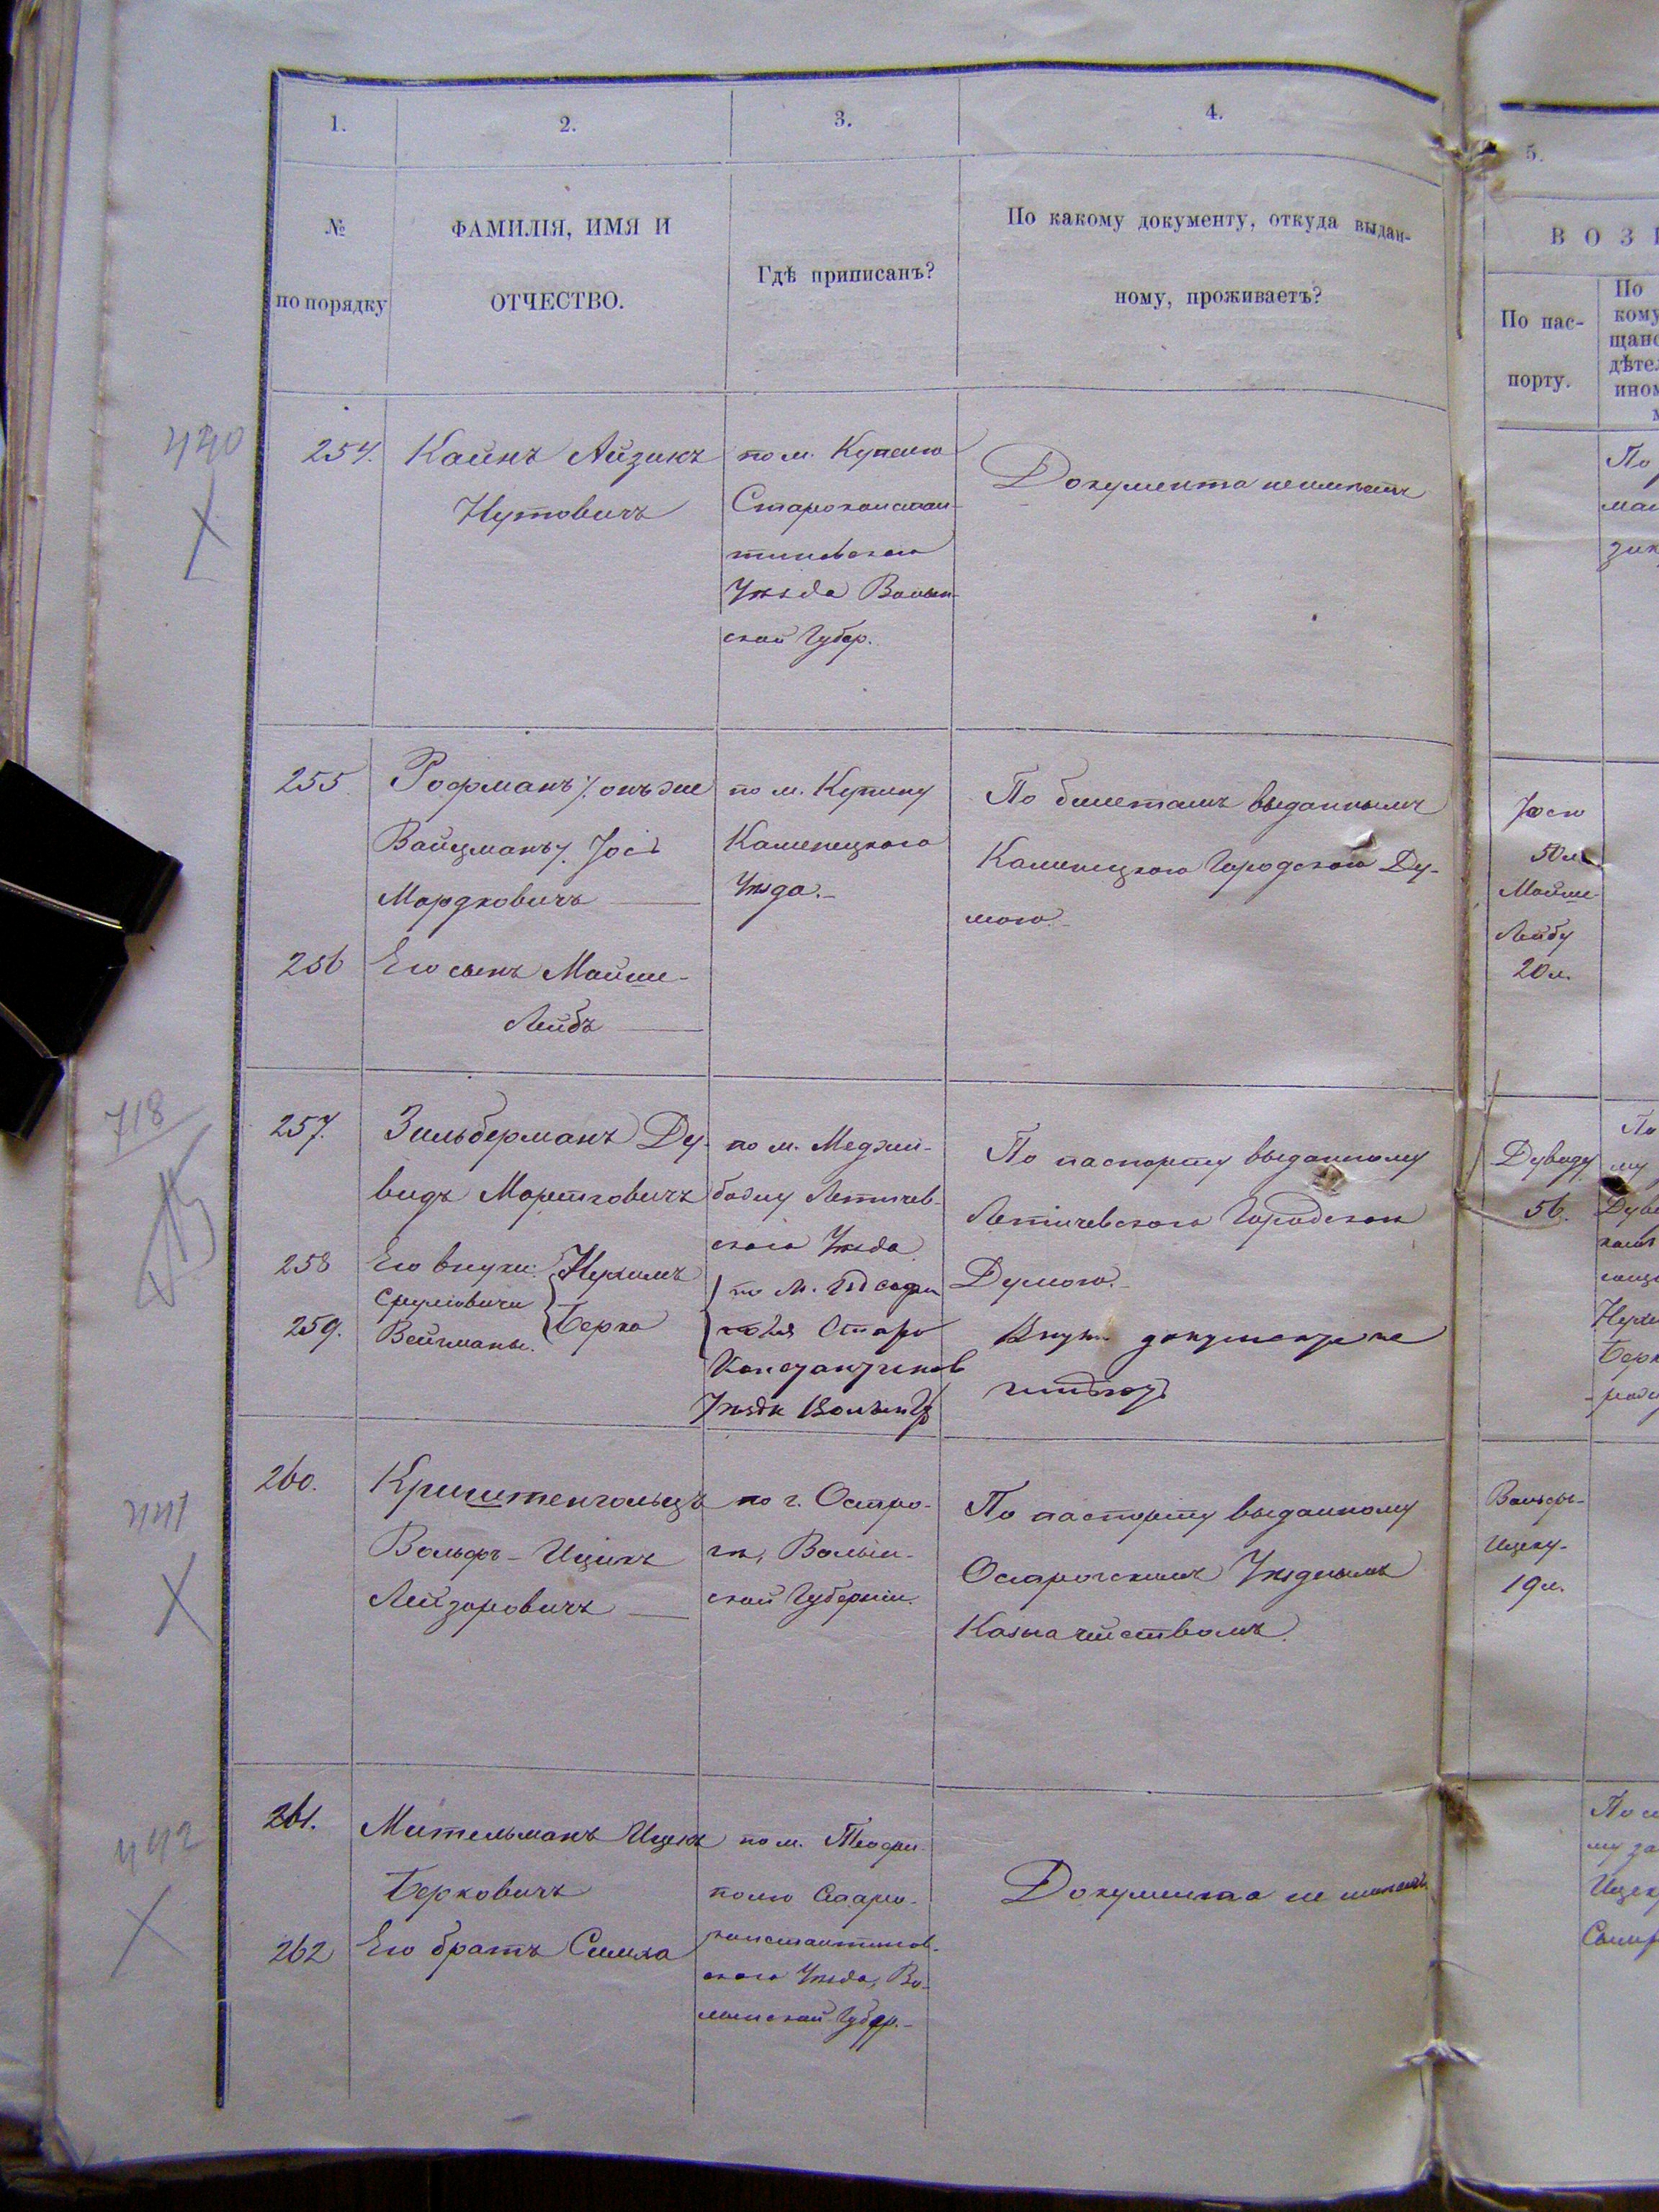 1.
2.
3.
4.
5.
№
по порядку
ФАМИЛІЯ, ИМЯ И
ОТЧЕСТВО.
Гдѣ приписанъ?
По какому документу, откуда выдан-
ному, проживаетъ?
ВОЗ
По пас-
порту.
По
кому
щанс
дѣте
ином
440
254.
Каинъ Айзикъ
Нутовичъ
по м. Купелю
Староконстан-
тиновскаго
Уѣзда Волын-
ской Губер.
Документа не имѣетъ
По
255
Рофманъ /. онъ же
Вайцманъ /. Іось
Мордковичъ
по м. Купину
Каменецкаго
Уѣзда.
По билетамъ выданнымъ
Каменецкою Городскою Ду-
мою.
Іосю
50 л.
Мойше-
Лейбу
20 л.
256
Его сынъ Мойше-
Лейбъ
718
257.
Зильберманъ Ду-
видъ Мортковичъ
по м. Меджи-
божу Летичев-
скаго Уѣзда
По паспорту выданному
Летичевскою Городскою
Думою.
Дувиду
56.
По
му
258
259.
Его внуки:
Сруліовичи
Вейцманы.
Нухимъ
Берко
по м.
Старо
Константинов
Уѣзда Волын Гу
Внуки документа не
имѣютъ
441
260.
Криштенгольцъ
Вольфъ-Ицикъ
Лейзоровичъ
по г. Остро-
гу, Волын-
ской Губерніи.
По паспорту выданному
Острогскимъ Уѣзднымъ
Казначействомъ.
Вольфъ-
Ицку-
19 л.
442
261.
Мительманъ Ицекъ
Берковичъ
по м. Теофи-
полю Старо-
константинов-
скаго Уѣзда, Во-
лынской Губер.
Документа не имѣетъ
262
Его братъ Симха
му за
Ицек